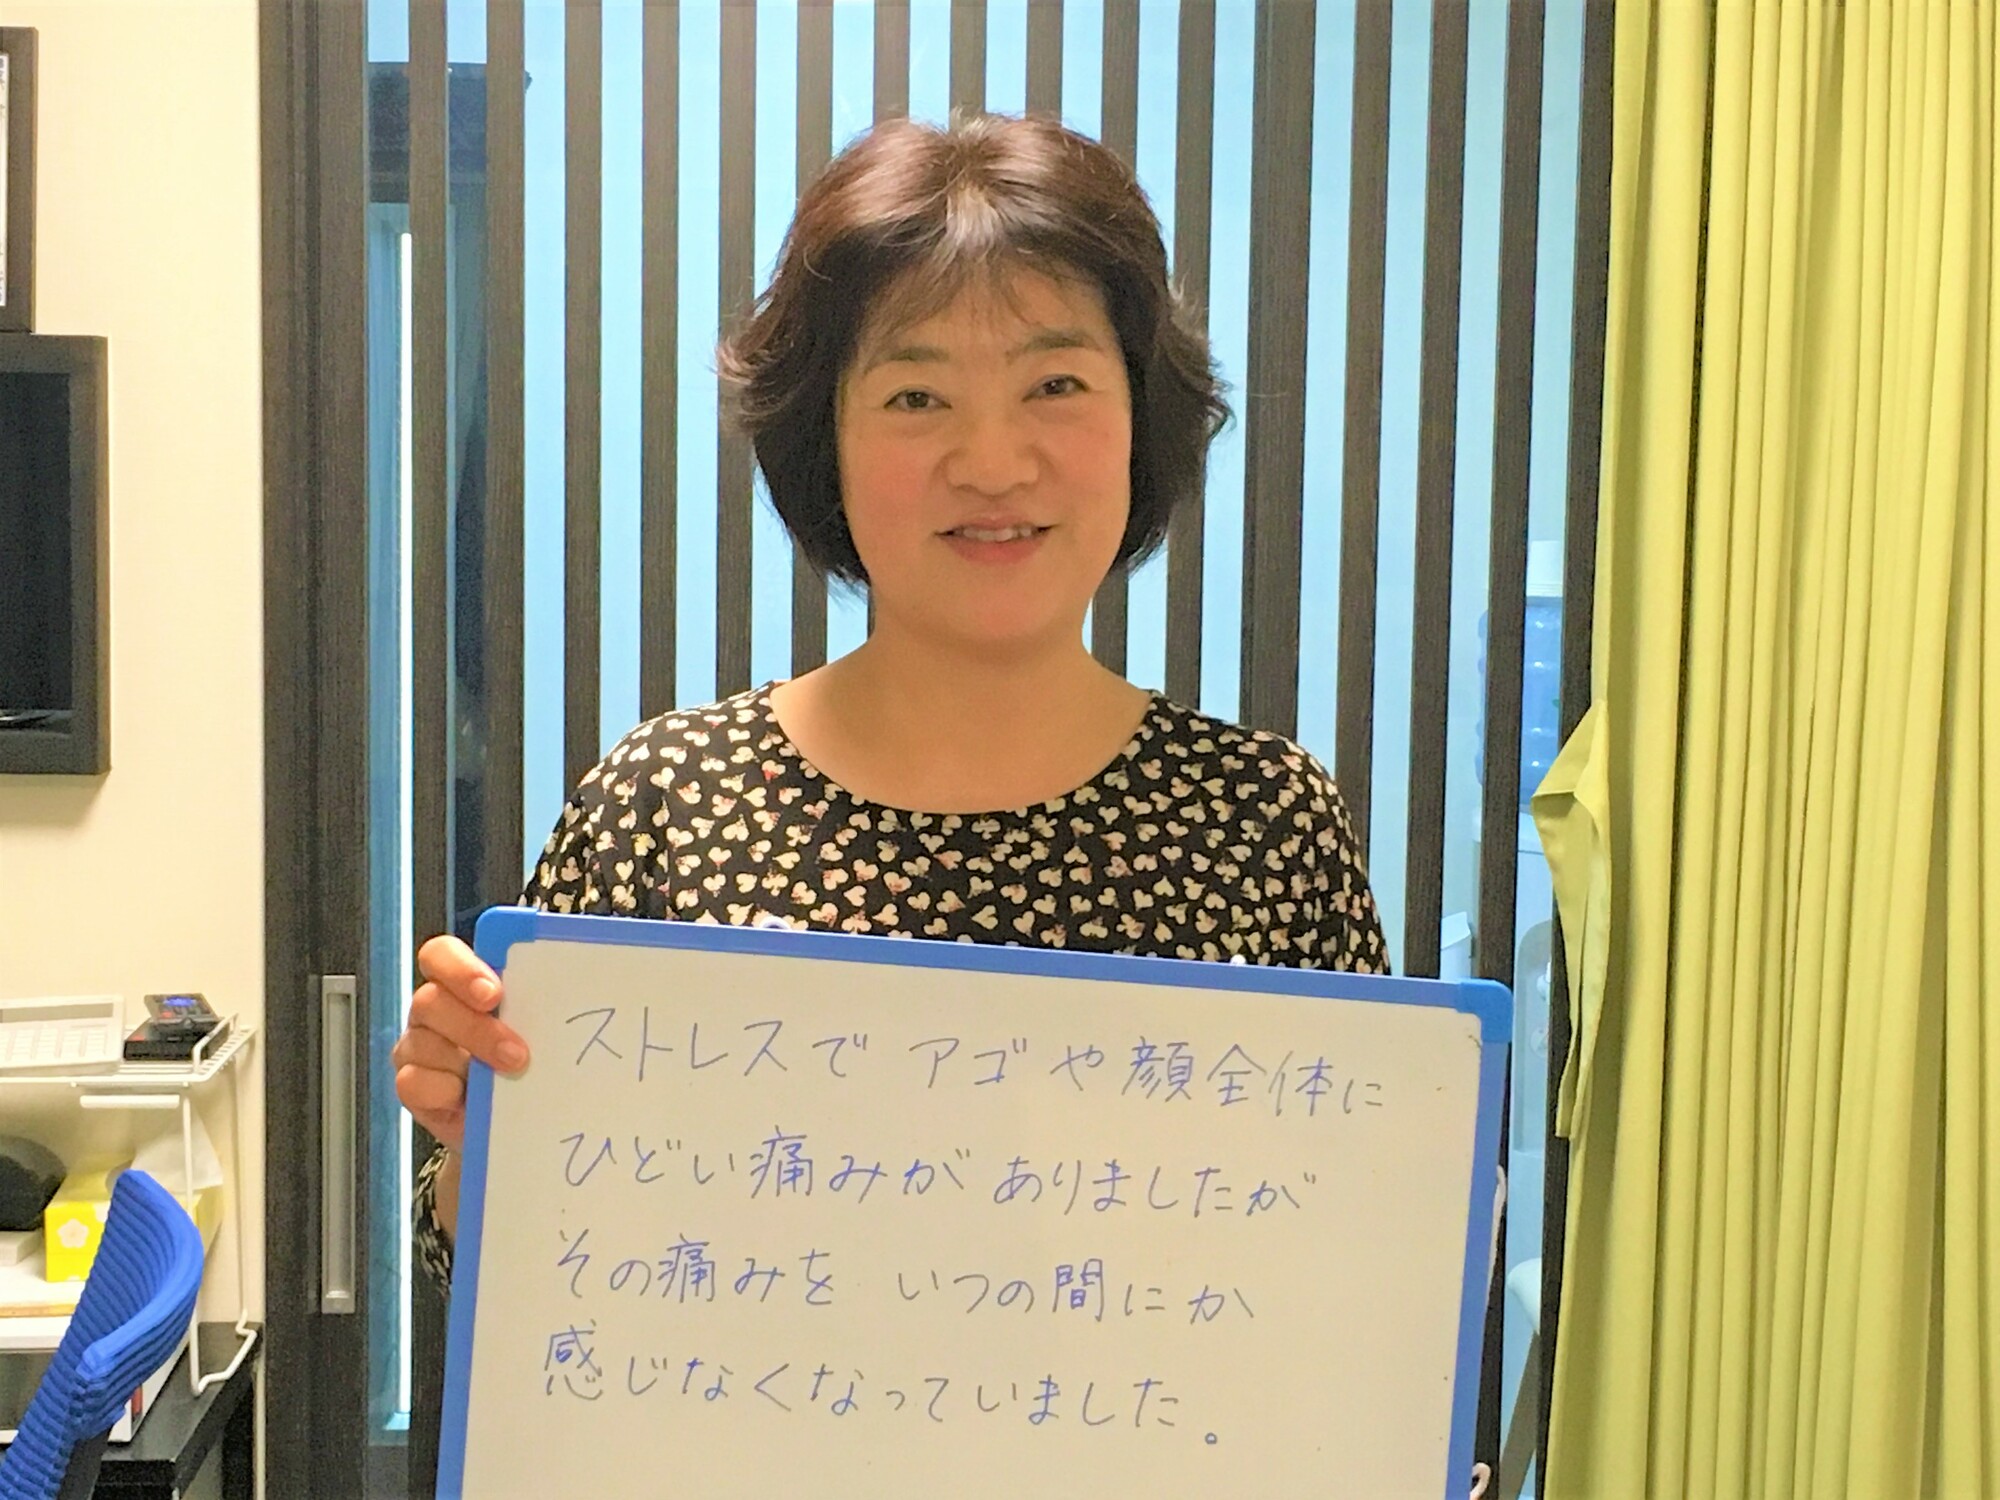 ストレスで アゴや顔全体に
ひどい痛みが ありましたが
その痛みを いつの間にか
感じなくなっていました。